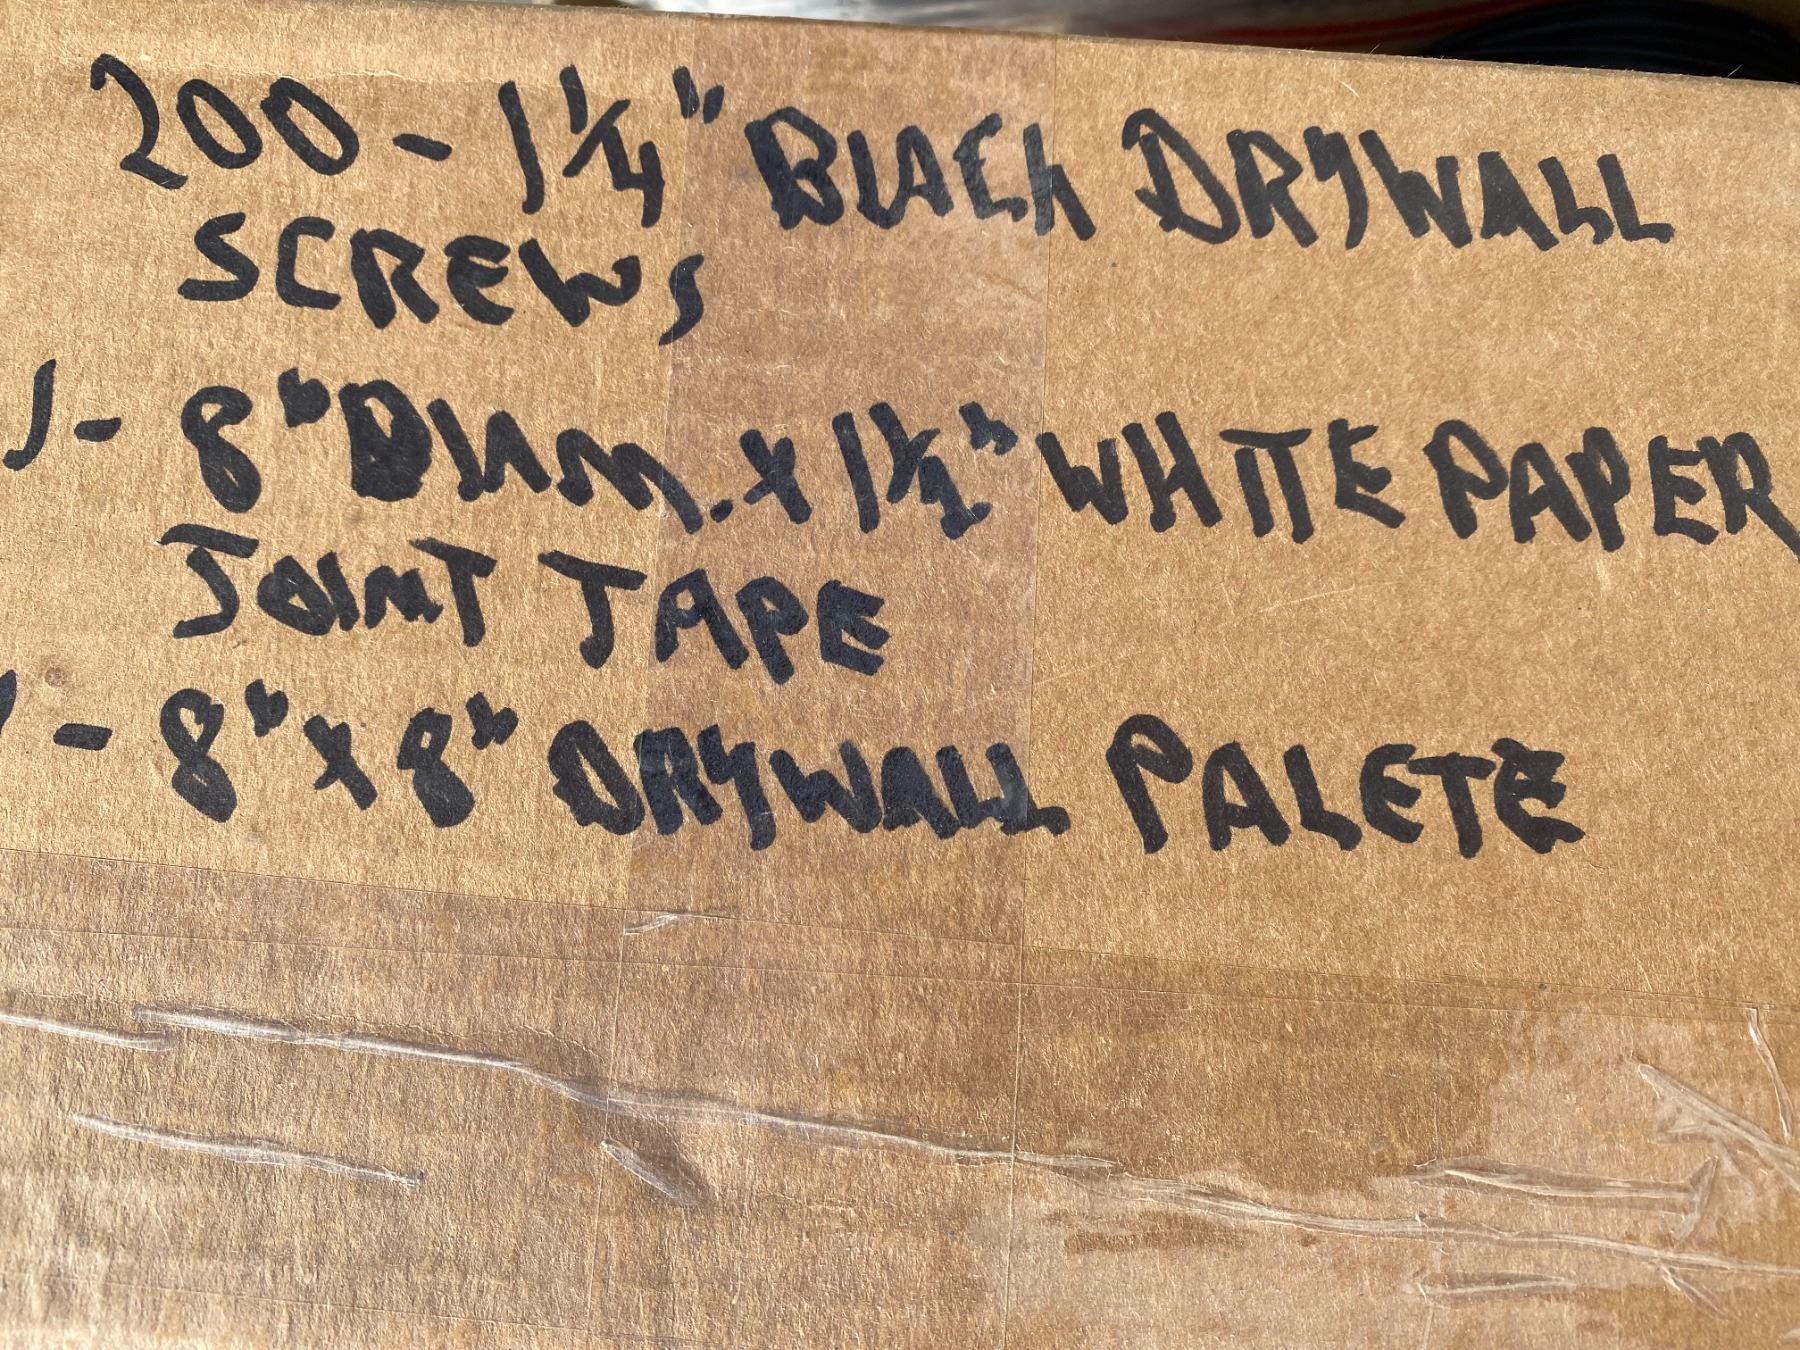 200 - 1 1/4" BLACK DRYWALL
SCREWS
1 - 8" DIAM. X 1 1/2" WHITE PAPER
JOINT TAPE
1 - 8" X 8" DRYWALL PALETE